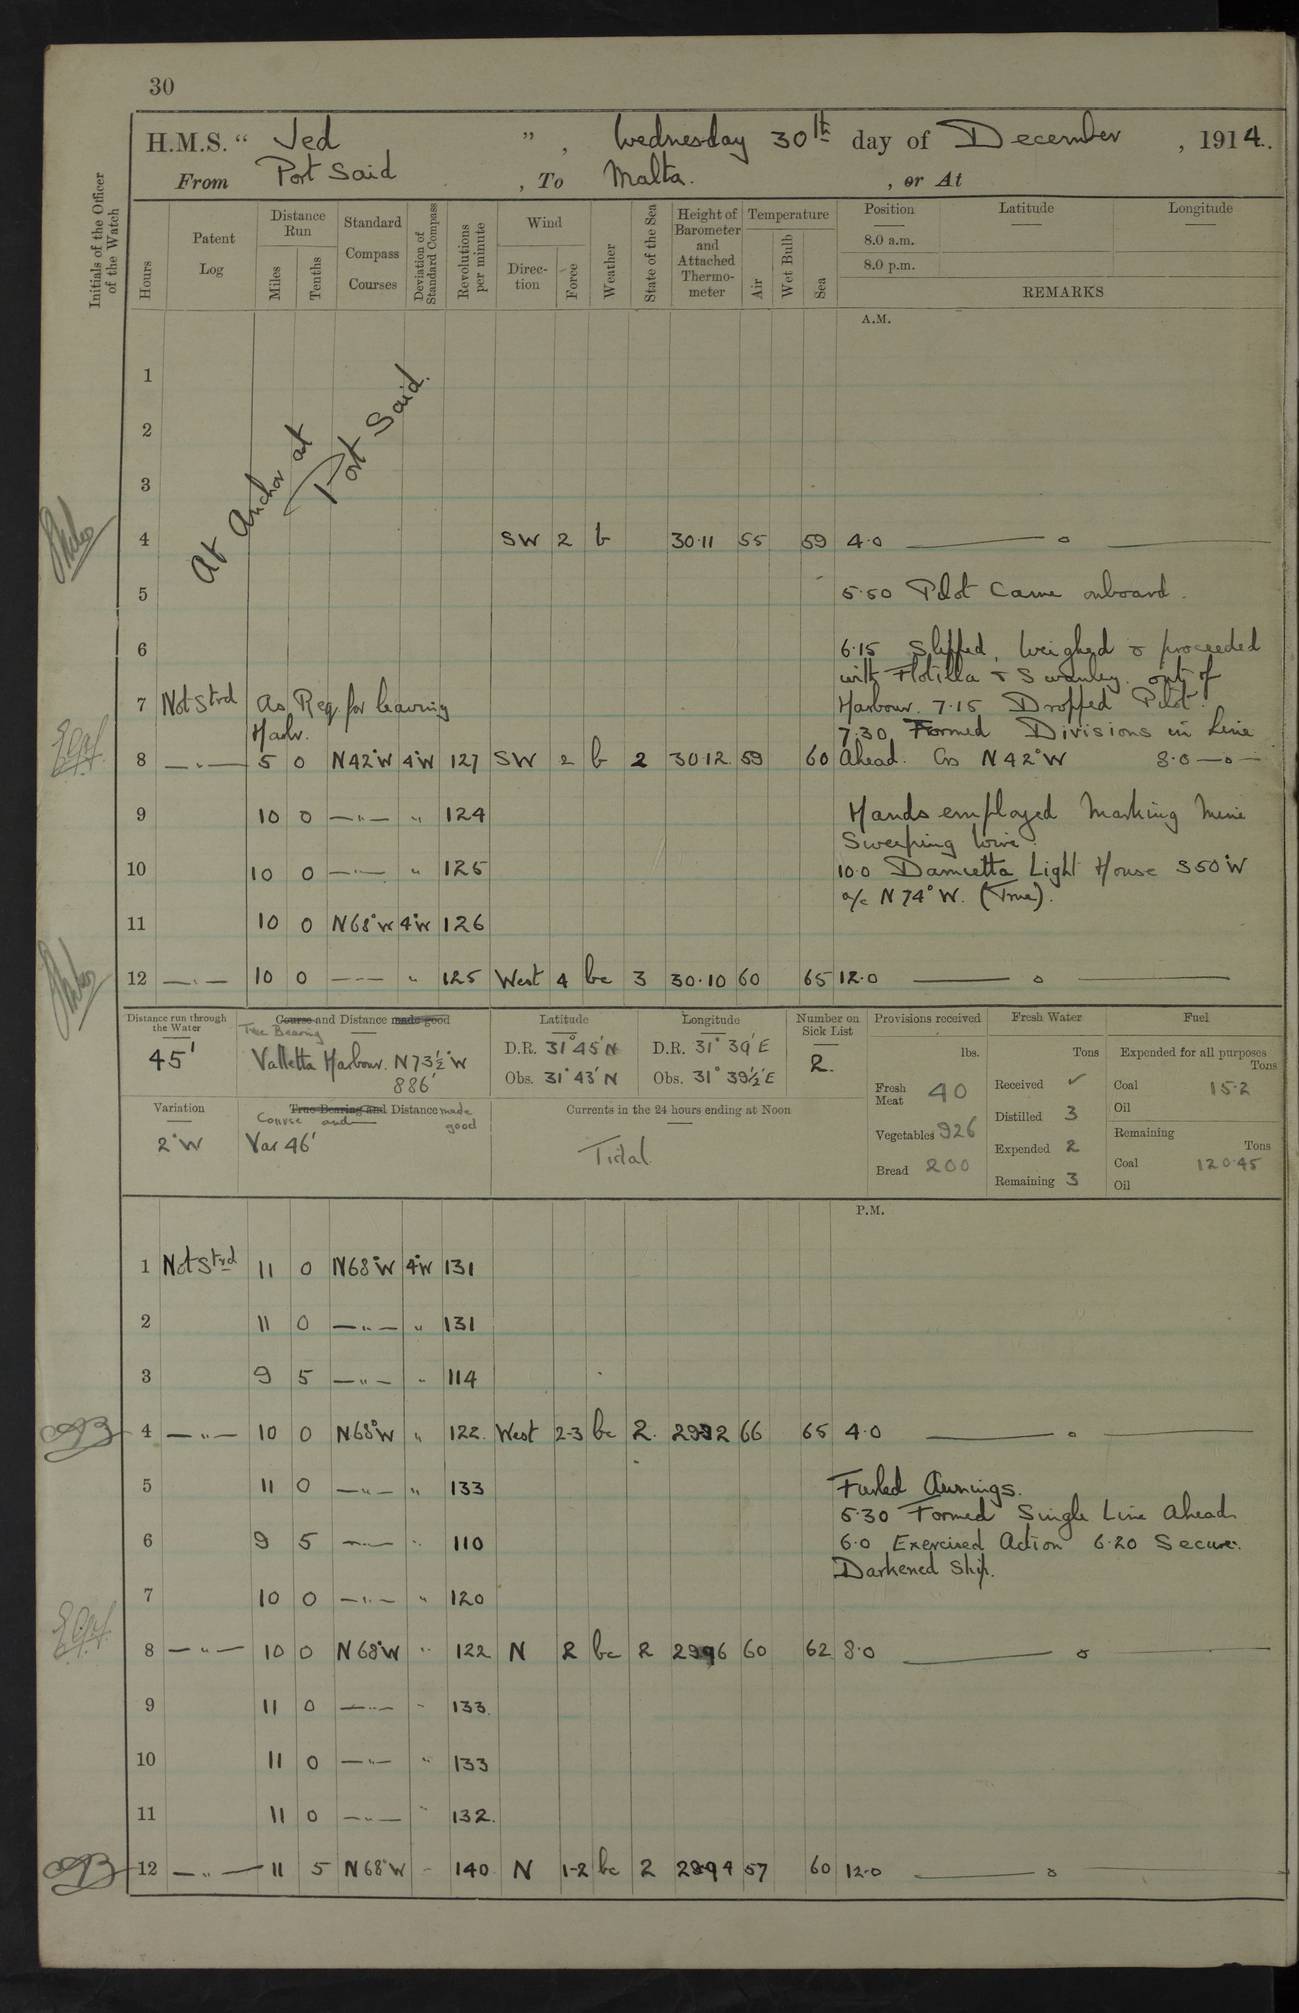 30
H.M.S. “ Jed ” , Wednesday 30th day of December , 1914.
From Port Said , To Malta. , or At
Initials of the Officer of the Watch
Hours Patent Log Distance Run Miles Tenths Standard Compass Courses Deviation of Standard Compass Revolutions per minute Wind Direc-tion Force Weather State of the Sea Height of Barometer and Attached Thermo-meter Temperature Air Wet Bulb Sea Position Latitude Longitude
8.0 a.m.
8.0 p.m.
REMARKS
A.M.
At Anchor at
Port Said.
1
2
3
4 SW 2 b 30·11 55 59 4·0 — o —
5 5·50 Pilot Came onboard.
6 6·15 Slipped, Weighed & proceeded
with Flotilla & Swanley out of
7 Not Strd As Req. for leaving Harbour. 7·15 Dropped Pilot.
Harbr. 7·30 Formed Divisions in Line
8 — " — 5 0 N42°W 4°W 127 SW 2 b 2 30·12 59 60 Ahead. Co N42°W 8·0 — o —
9 10 0 — " — " 124 Hands employed Marking Mine
Sweeping Wire.
10 10 0 — " — " 125 10·0 Damietta Light House S50°W
a/c N74°W. (True).
11 10 0 N68°W 4°W 126
12 — " — 10 0 — " — " 125 West 4 bc 3 30·10 60 65 12·0 — o —
Distance run through the Water Course and Distance made good Latitude Longitude Number on Sick List Provisions received Fresh Water Fuel
True Bearing
45' Valletta Harbour. N73½°W D.R. 31°45'N D.R. 31°39'E 2. lbs. Tons Expended for all purposes Tons
886' Obs. 31°43'N Obs. 31°39½'E Fresh Meat 40 Received ✓ Coal 15·2
Oil
Variation True Bearing and Distance made good Currents in the 24 hours ending at Noon Distilled 3
Course and
2°W Var 46' Tidal Vegetables 926 Expended 2 Remaining Tons
Bread 200 Remaining 3 Coal 120·45
Oil
P.M.
1 Not Strd 11 0 N68°W 4°W 131
2 11 0 — " — " 131
3 9 5 — " — " 114
4 — " — 10 0 N68°W " 122. West 2-3 bc 2. 2992 66 65 4·0 — o —
5 11 0 — " — " 133 Furled Awnings.
5·30 Formed Single Line Ahead
6 9 5 — " — " 110 6·0 Exercised Action 6·20 Secure.
Darkened Ship.
7 10 0 — " — " 120
8 — " — 10 0 N68°W " 122 N 2 bc 2 2996 60 62 8·0 — o —
9 11 0 — " — " 133.
10 11 0 — " — " 133
11 11 0 — " — " 132.
12 — " — 11 5 N68°W " 140 N 1-2 bc 2 2994 57 60 12·0 — o —